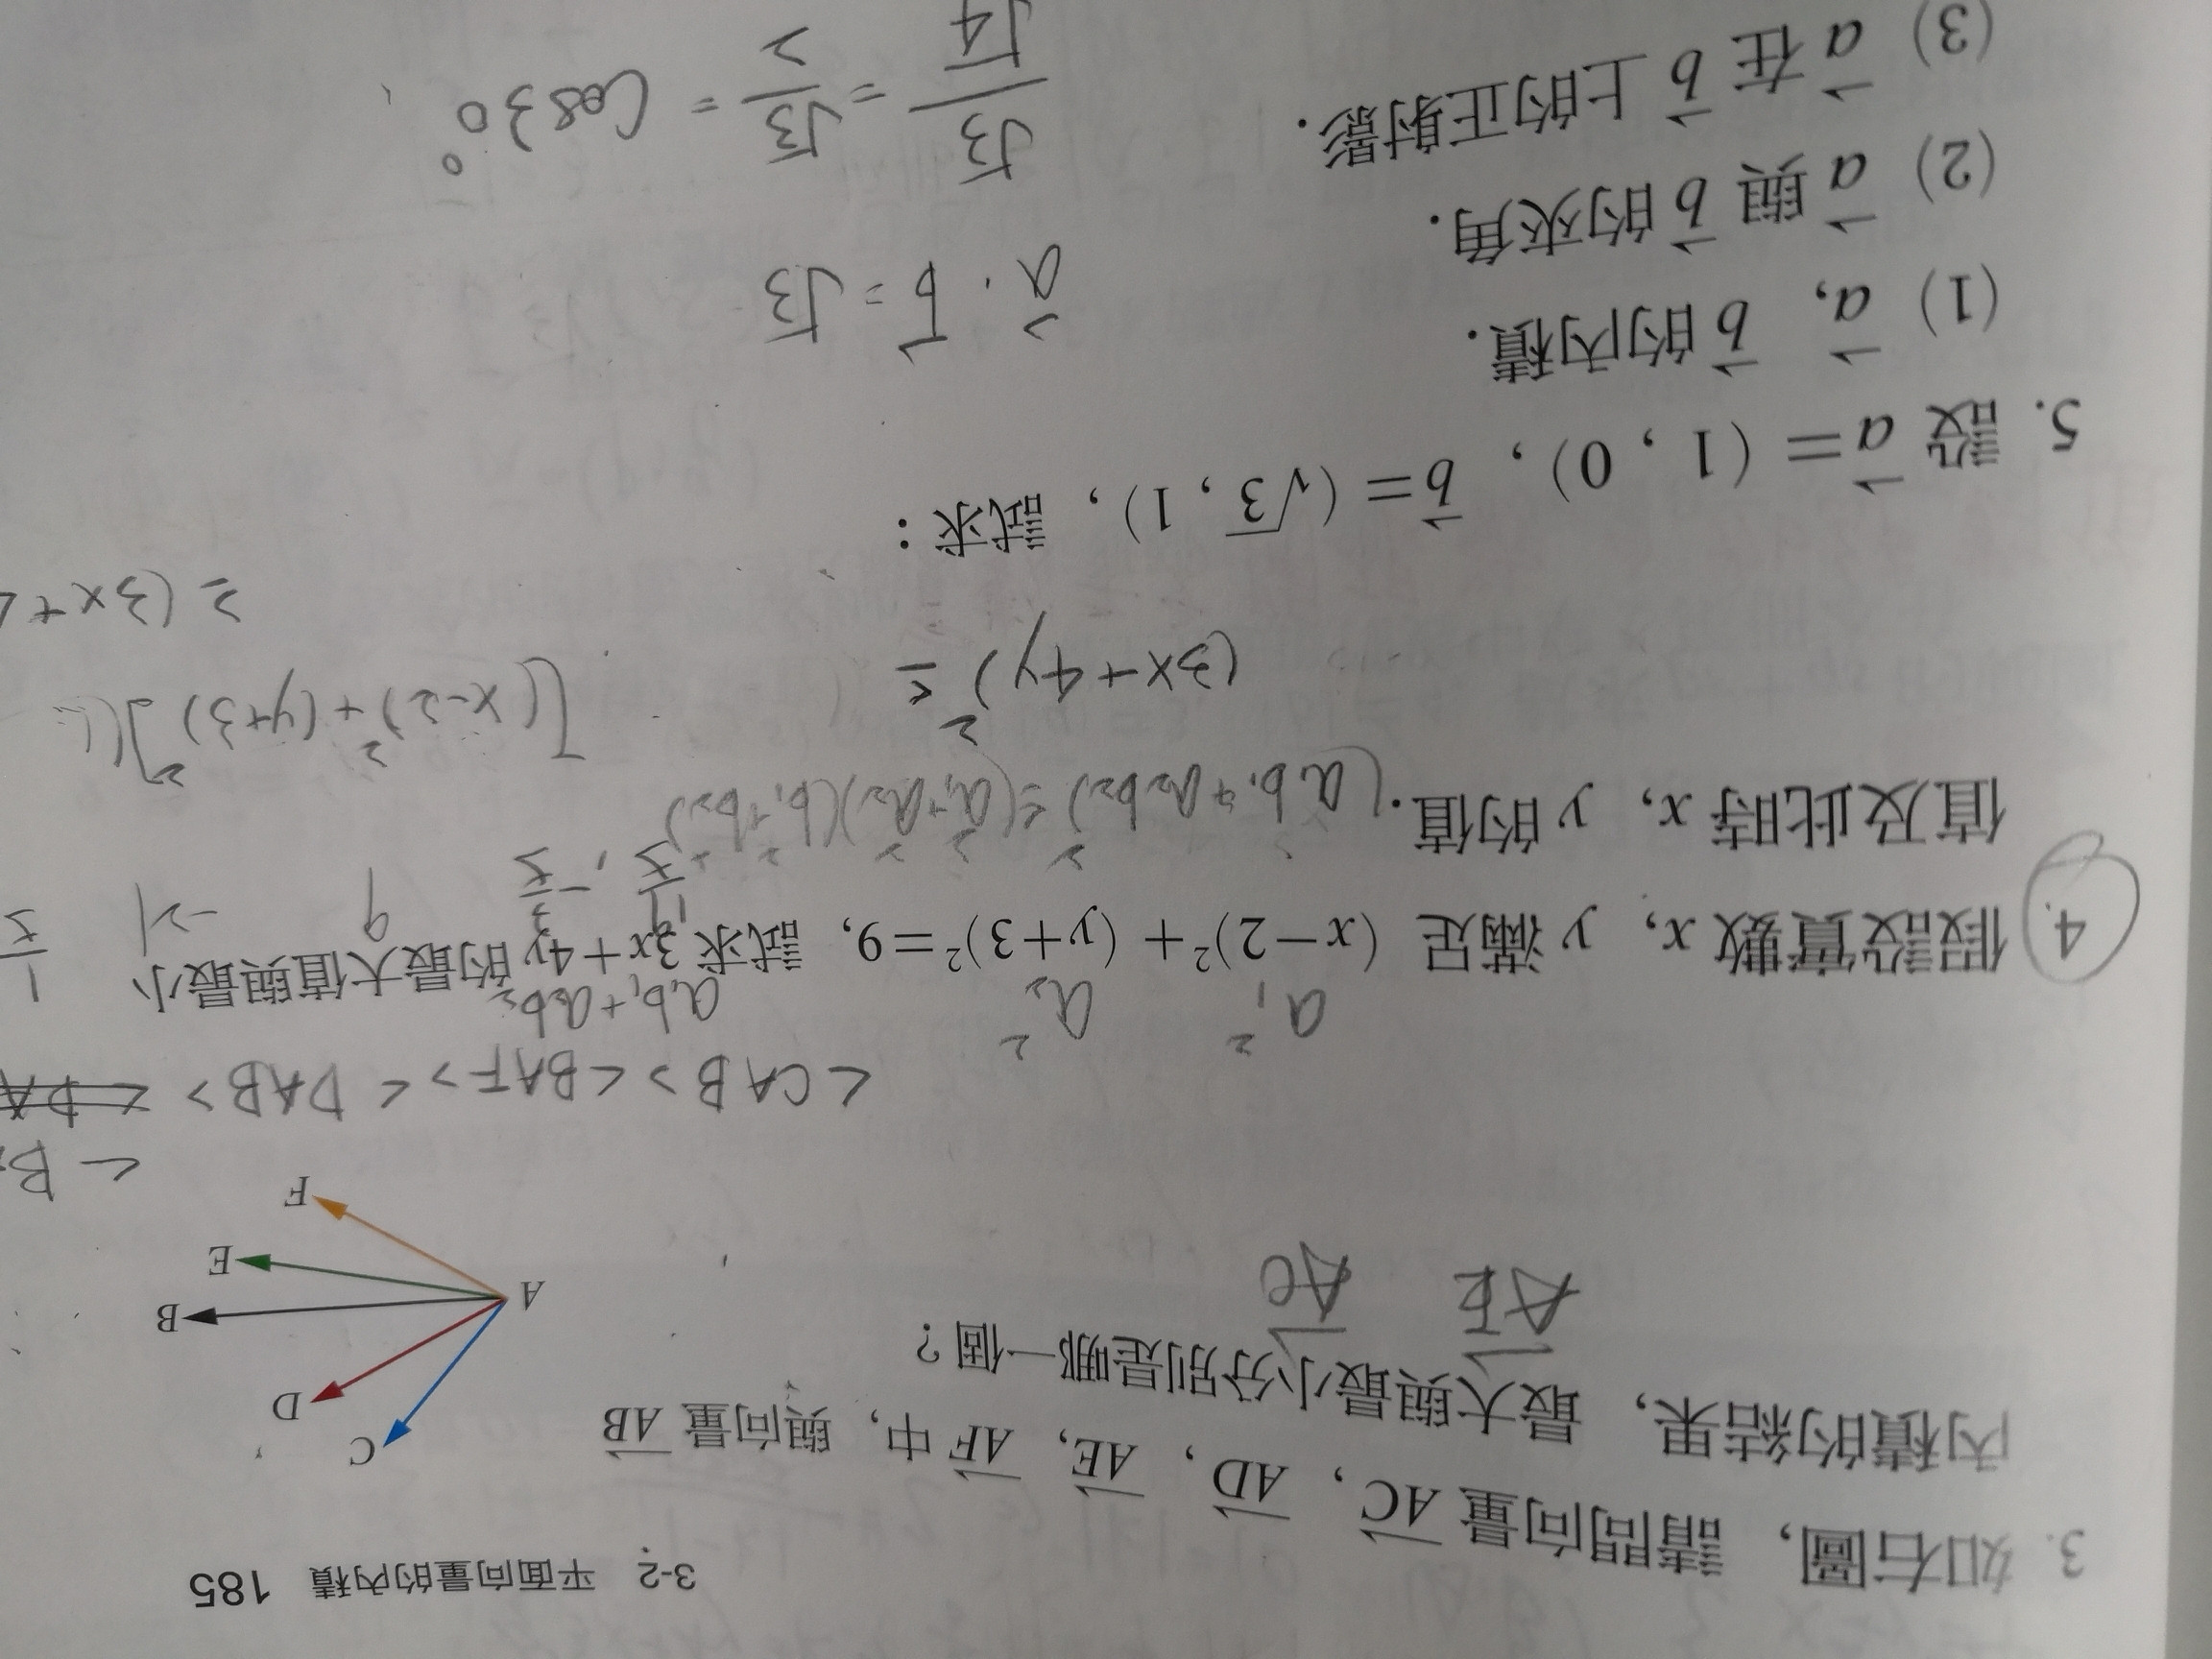 3-2 平面向量的內積 185
3. 如右圖，請問向量 AC、AD、AE、AF 中，與向量 AB
內積的結果，最大與最小分別是哪一個？
AE AC
C
D
B
E
F
A
<CAB> <BAF> <DAB>
a₁² a₂² a₁b₁+a₂b₂
4. 假設實數 x，y 滿足 (x−2)²+(y+3)²=9，試求 3x+4y 的最大值與最小
值及此時 x，y 的值．
(a₁b₁+a₂b₂)²≤(a₁²+a₂²)(b₁²+b₂²)
(3x+4y)² ≤
[(x-2)²+(y+3)²](
≥(3x+
5. 設 a=(1，0)，b=(√3，1)，試求：
(1) a，b 的內積．
a·b=√3
(2) a 與 b 的夾角．
√3/√4 = √3/2 = Cos30°
(3) a 在 b 上的正射影．